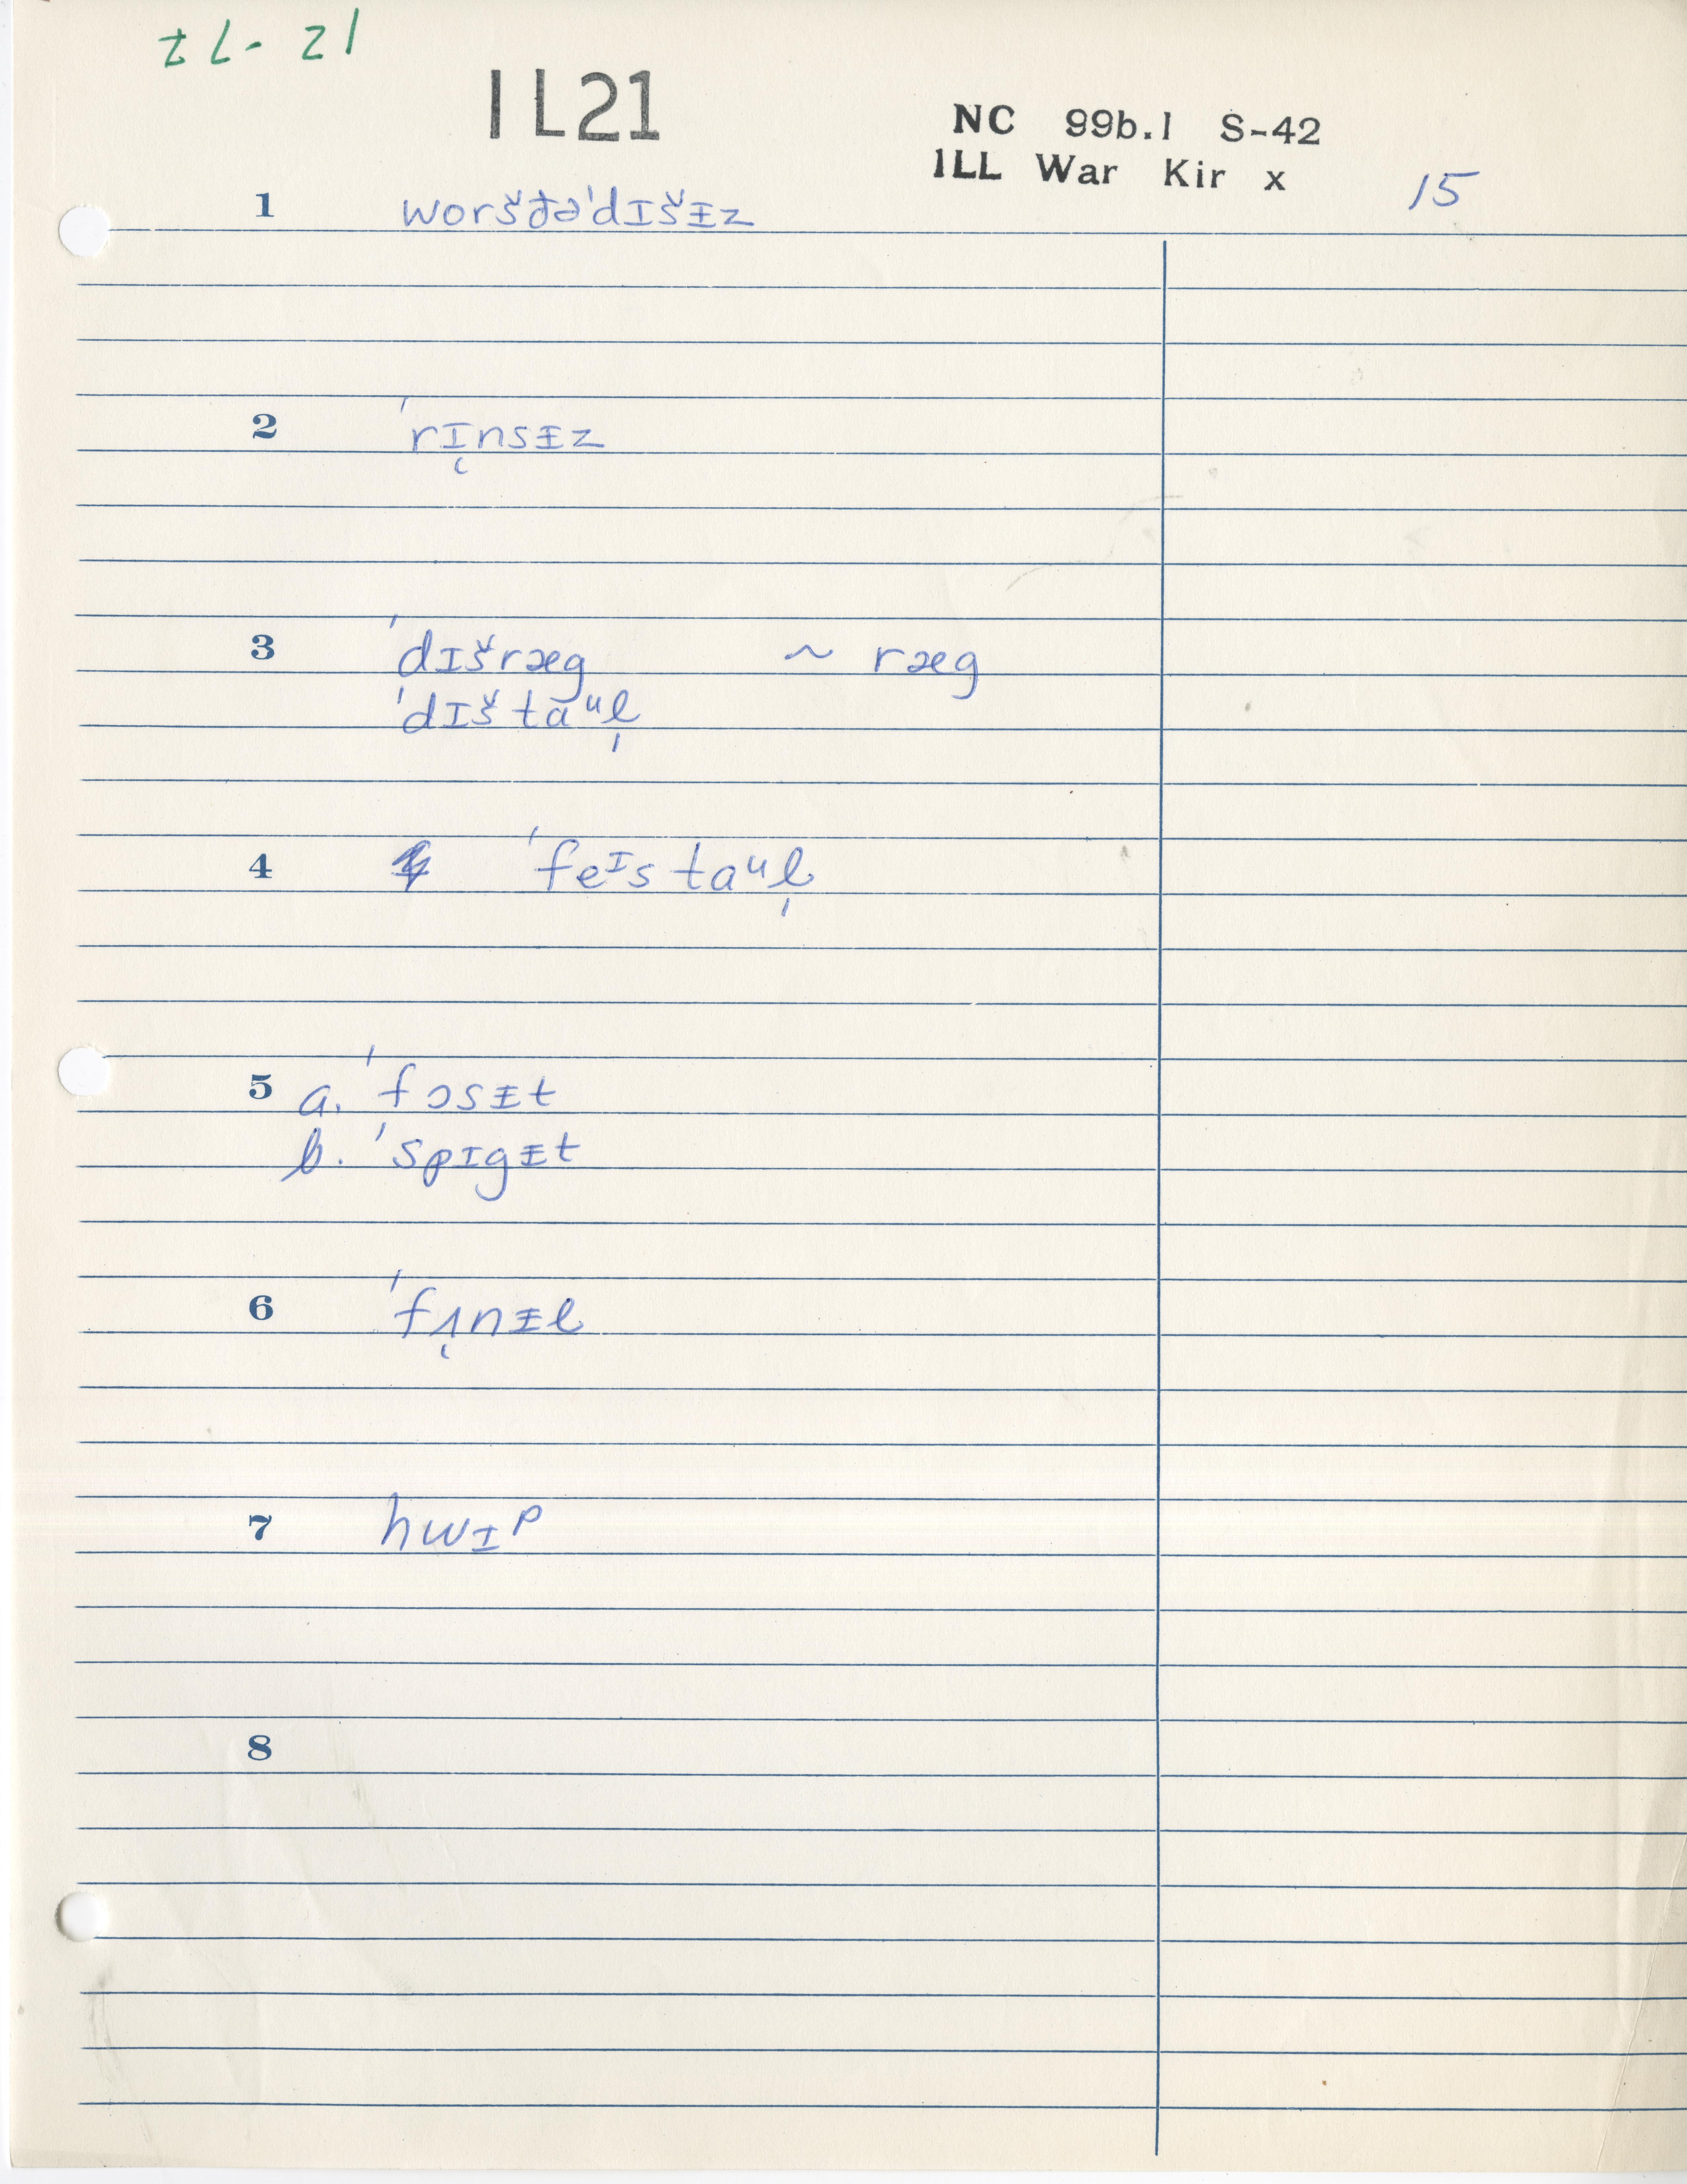 IL-21
IL21
NC 99b.1 S-42
ILL War Kir x
15
1 woršðə'dɪšɪ̵z
2 'rɪ̨nsɪ̵z
3 'dɪšræg ~ ræg
'dɪštaᵘl̩
4 'feᶦstaᵘl̩
5 a. 'fɔsɪ̵t
b. 'spɪgɪ̵t
6 'fʌ̨nɪ̵l
7 hwɪp
8